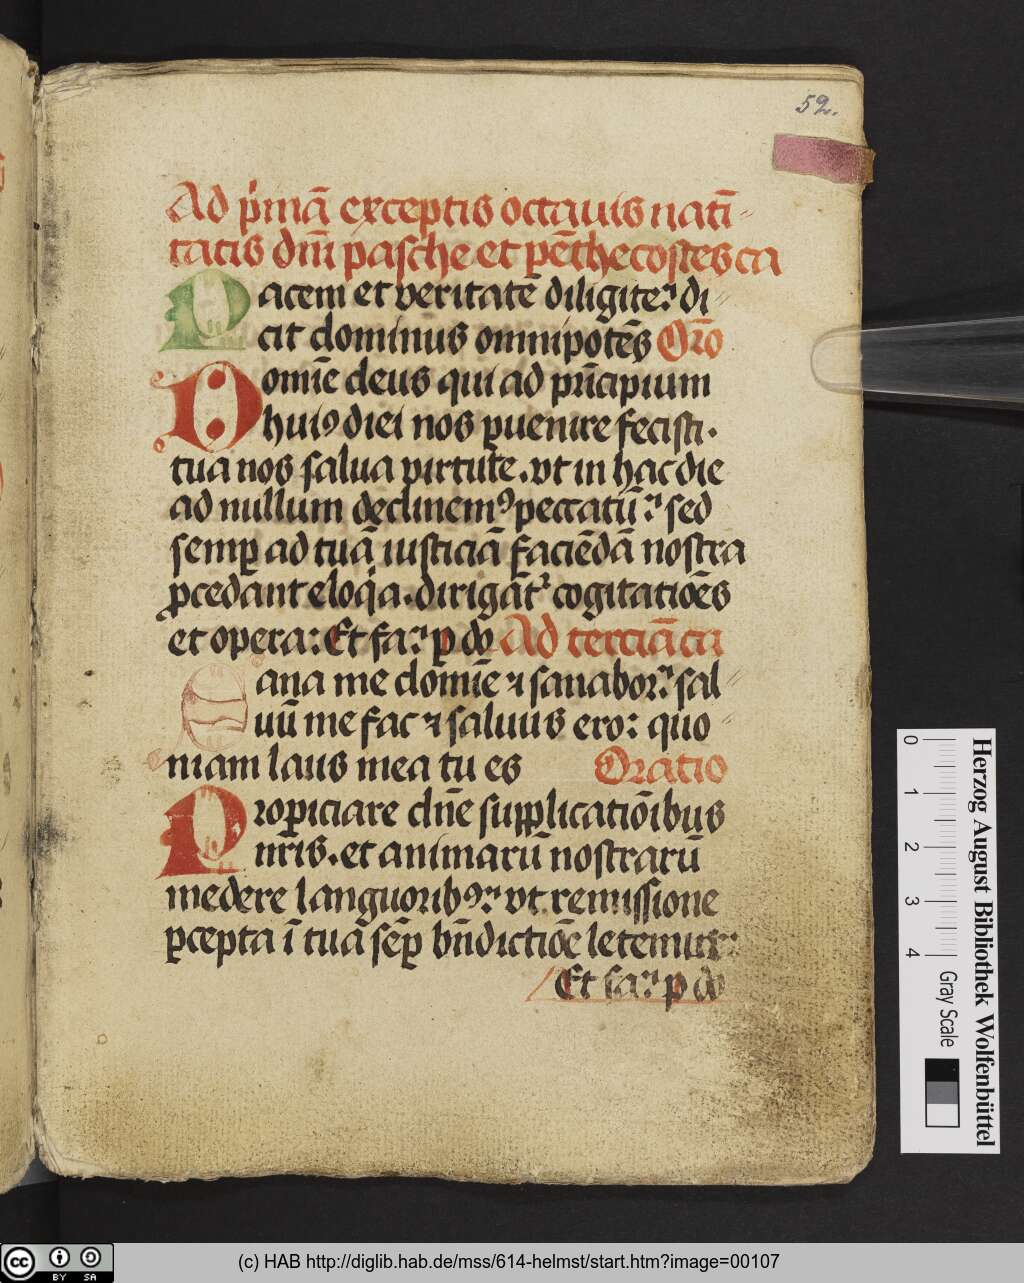 52.
Ad p'mā exceptis octauis nati-
tatis dn̄i pasche et pēthecostes ca
Pacem et veritatē diligite: di-
cit dominus omnipotēs Oro
Domīe deus qui ad prīcipium
huiꝰ diei nos puenire fecisti.
tua nos salua virtute. vt in hac die
ad nullum declinemꝰ peccatū: sed
semꝑ ad tuā iusticiā faciēdā nostra
ꝓcedant eloq'a. dirigāt' cogitatiōēs
et opera: Et fa: p do Ad terciā ca
Sana me domīe ⁊ sanabor: sal-
uū me fac ⁊ saluus ero: quo-
niam laus mea tu es Oratio
Propiciare dn̄e supplicatiōibus
nr̄is. et animarū nostrarū
medere languoribꝰ: vt remissione
ꝑcepta ī tuā sēꝑ bn̄dictiōe letemur:
Et fa: p do
Herzog August Bibliothek Wolfenbüttel
0 1 2 3 4
Gray Scale
cc BY SA
(c) HAB http://diglib.hab.de/mss/614-helmst/start.htm?image=00107